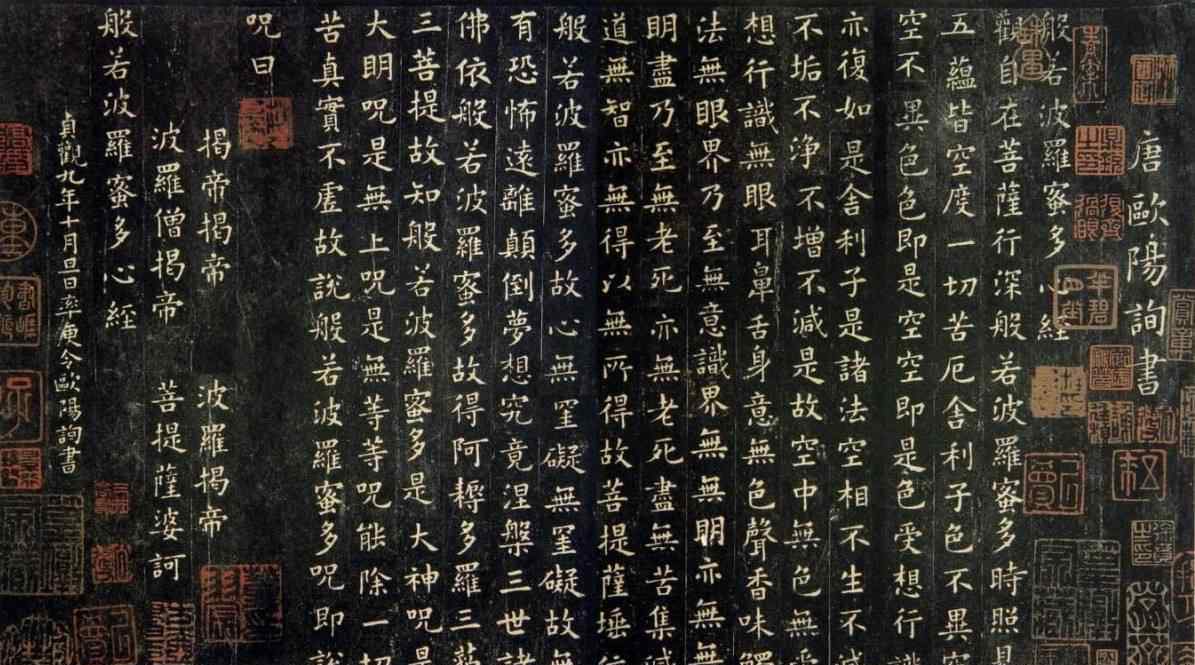 唐歐陽詢書
般若波羅蜜多心經
觀自在菩薩行深般若波羅蜜多時照見
五蘊皆空度一切苦厄舍利子色不異空
空不異色色即是空空即是色受想行識
亦復如是舍利子是諸法空相不生不滅
不垢不淨不增不減是故空中無色無受
想行識無眼耳鼻舌身意無色聲香味觸
法無眼界乃至無意識界無無明亦無無
明盡乃至無老死亦無老死盡無苦集滅
道無智亦無得以無所得故菩提薩埵
般若波羅蜜多故心無罣礙無罣礙故無
有恐怖遠離顛倒夢想究竟涅槃三世諸
佛依般若波羅蜜多故得阿耨多羅三藐
三菩提故知般若波羅蜜多是大神咒是
大明咒是無上咒是無等等咒能除一切
苦真實不虛故說般若波羅蜜多咒即說
咒曰
揭帝揭帝 波羅揭帝
波羅僧揭帝 菩提薩婆訶
般若波羅蜜多心經
貞觀九年十月旦日率更令歐陽詢書